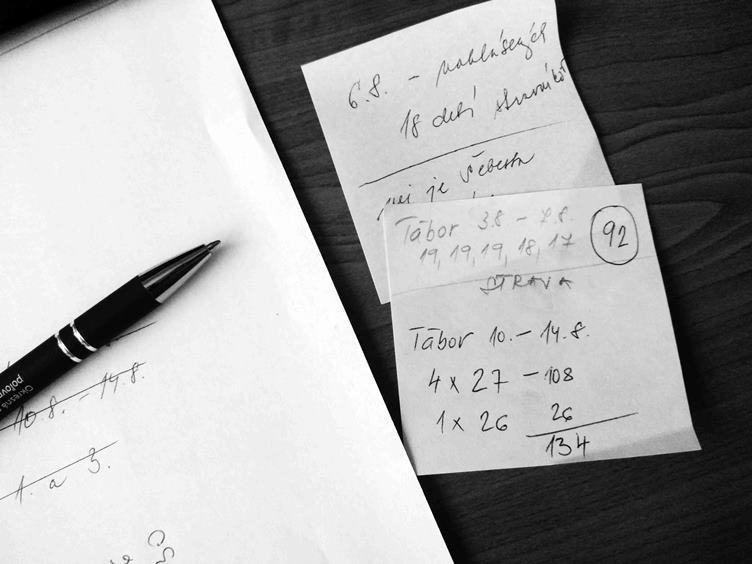 6.8. – nahlásených
18 detí stravníkov
nej je Šebesta
Tábor 3.8 – 7.8.
19, 19, 19, 18, 17
92
STRAVA
Tábor 10. – 14.8.
4 x 27 – 108
1 x 26 26
134
10.8. – 14.8.
1. a 3.